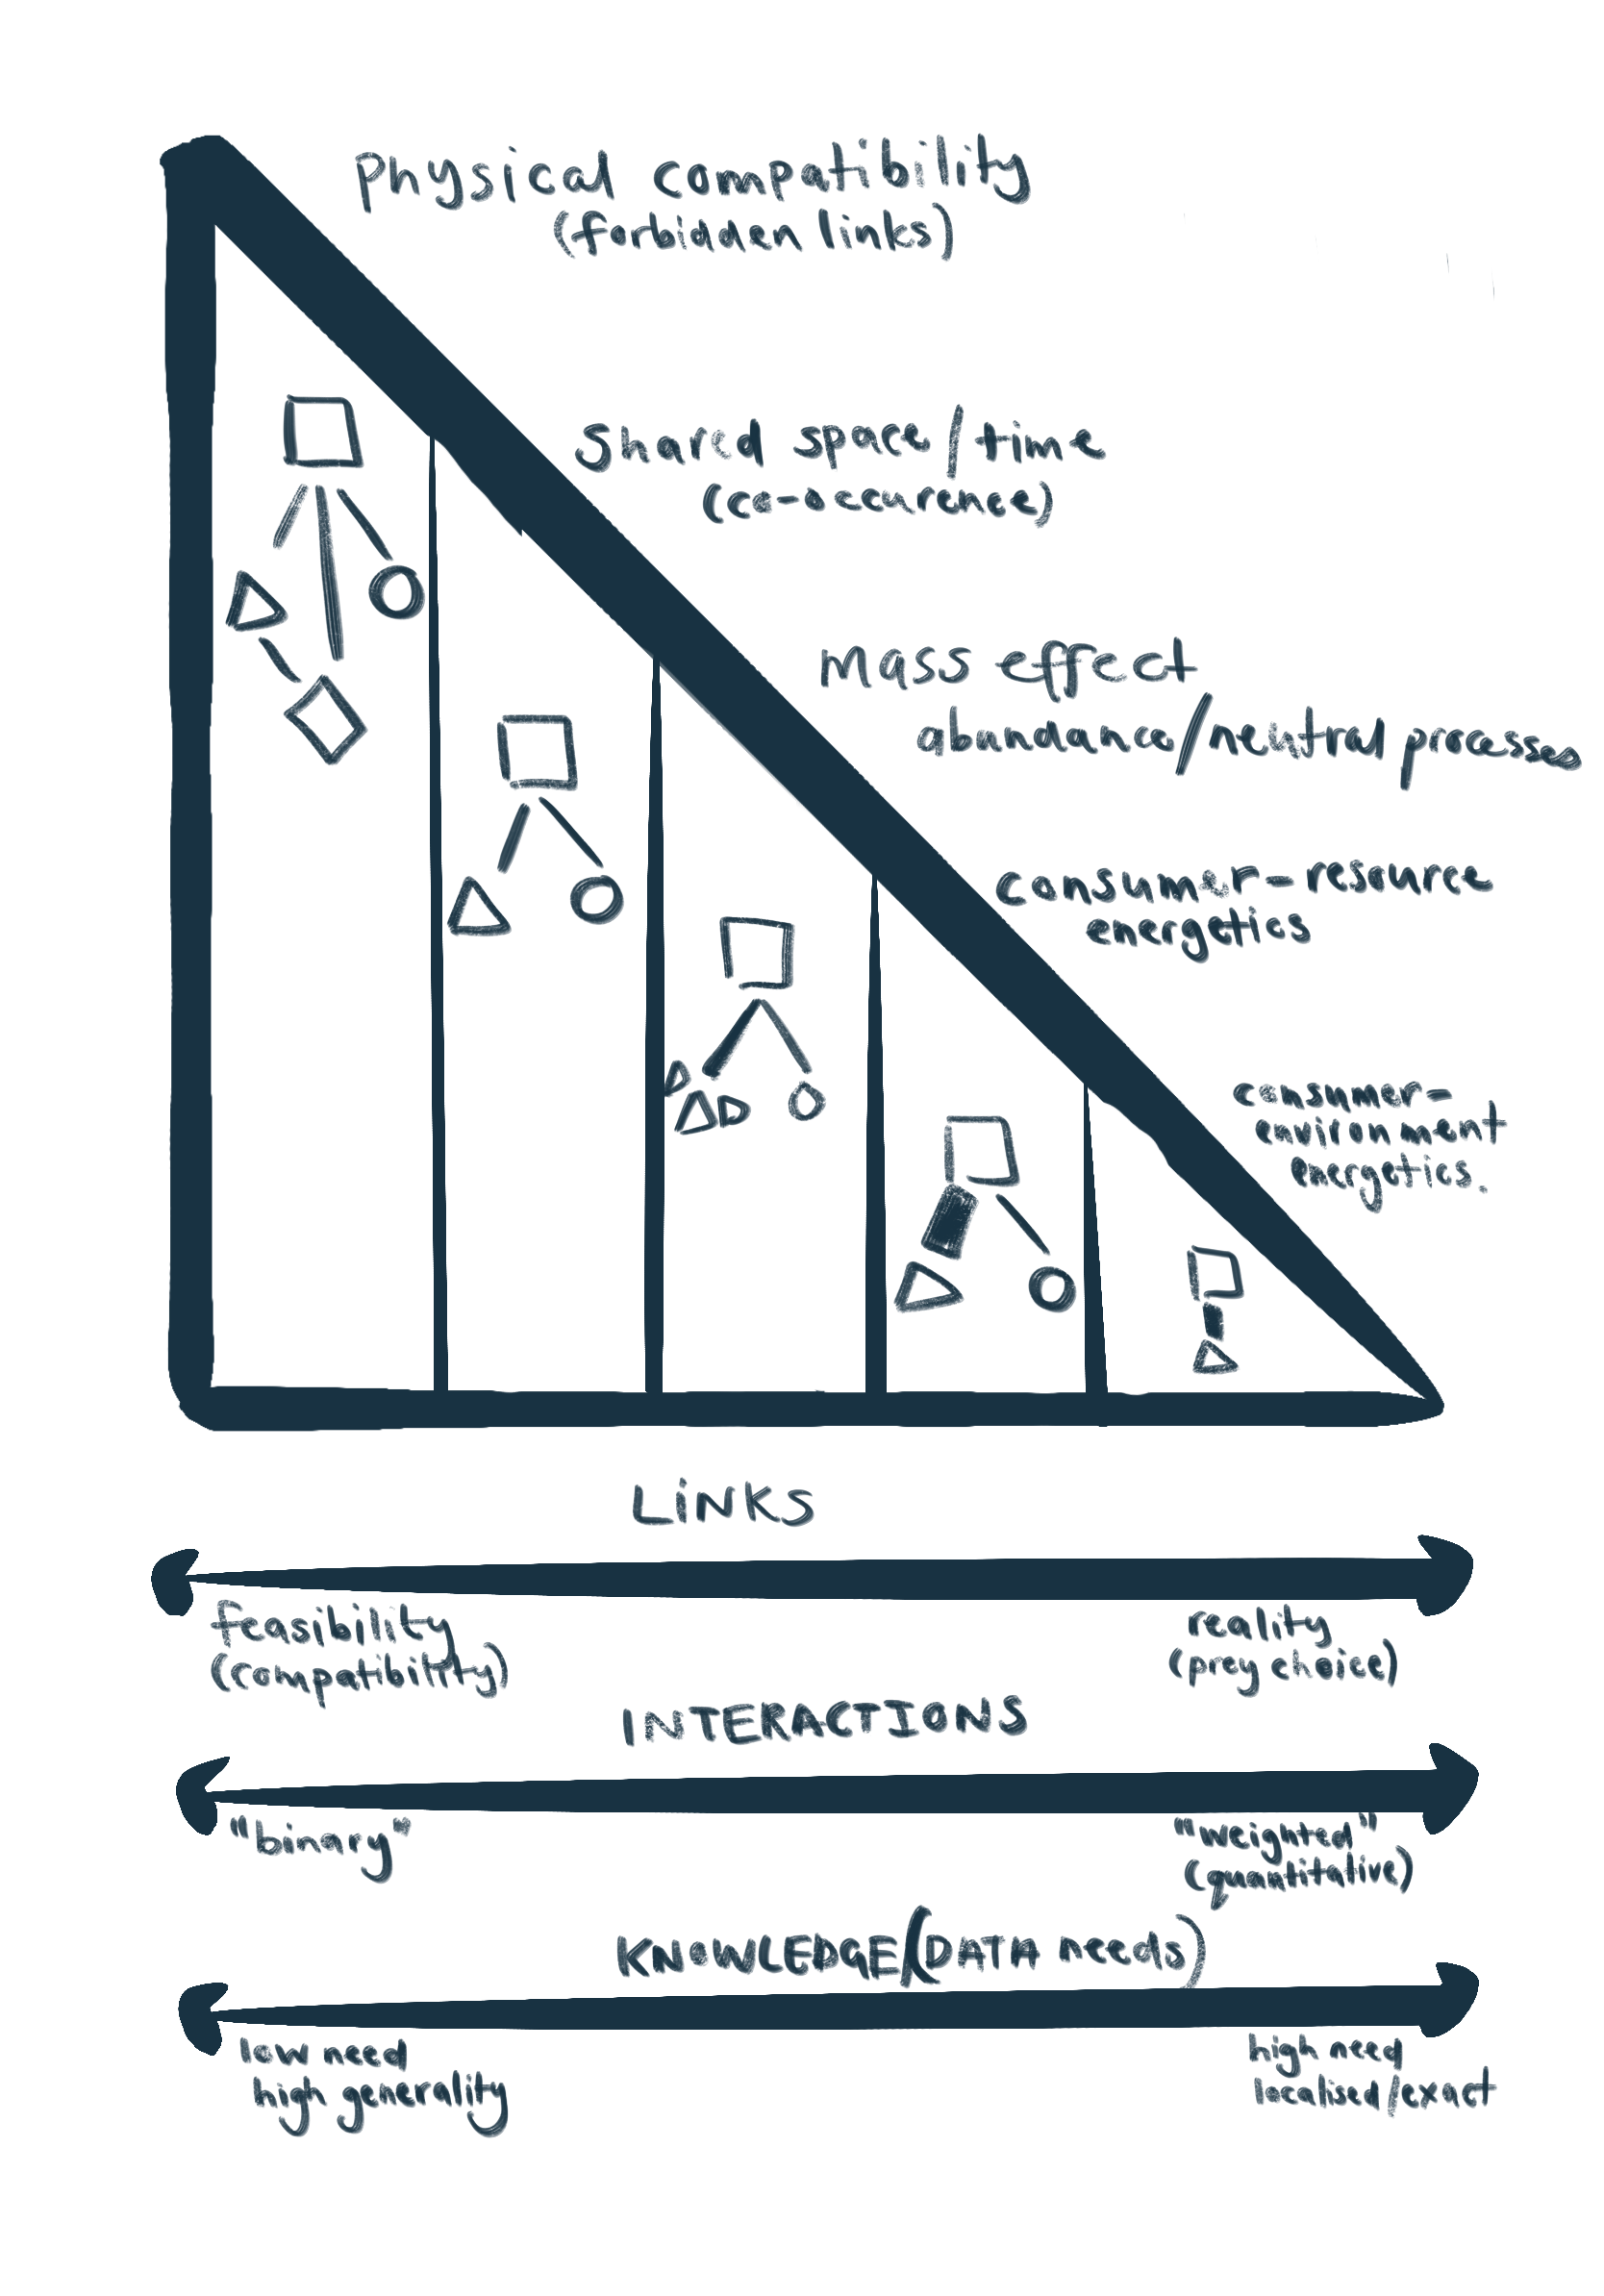 Physical compatibility
(forbidden links)
Shared space/time
(co-occurence)
Mass effect
abundance/neutral processes
consumer-resource
energetics
consumer-
environment
energetics.
LiNKS
feasibility
(compatibility)
reality
(prey choice)
INTERACTIONS
"binary"
"weighted"
(quantitative)
KNOWLEDGE(DATA needs)
low need
high generality
high need
localised/exact